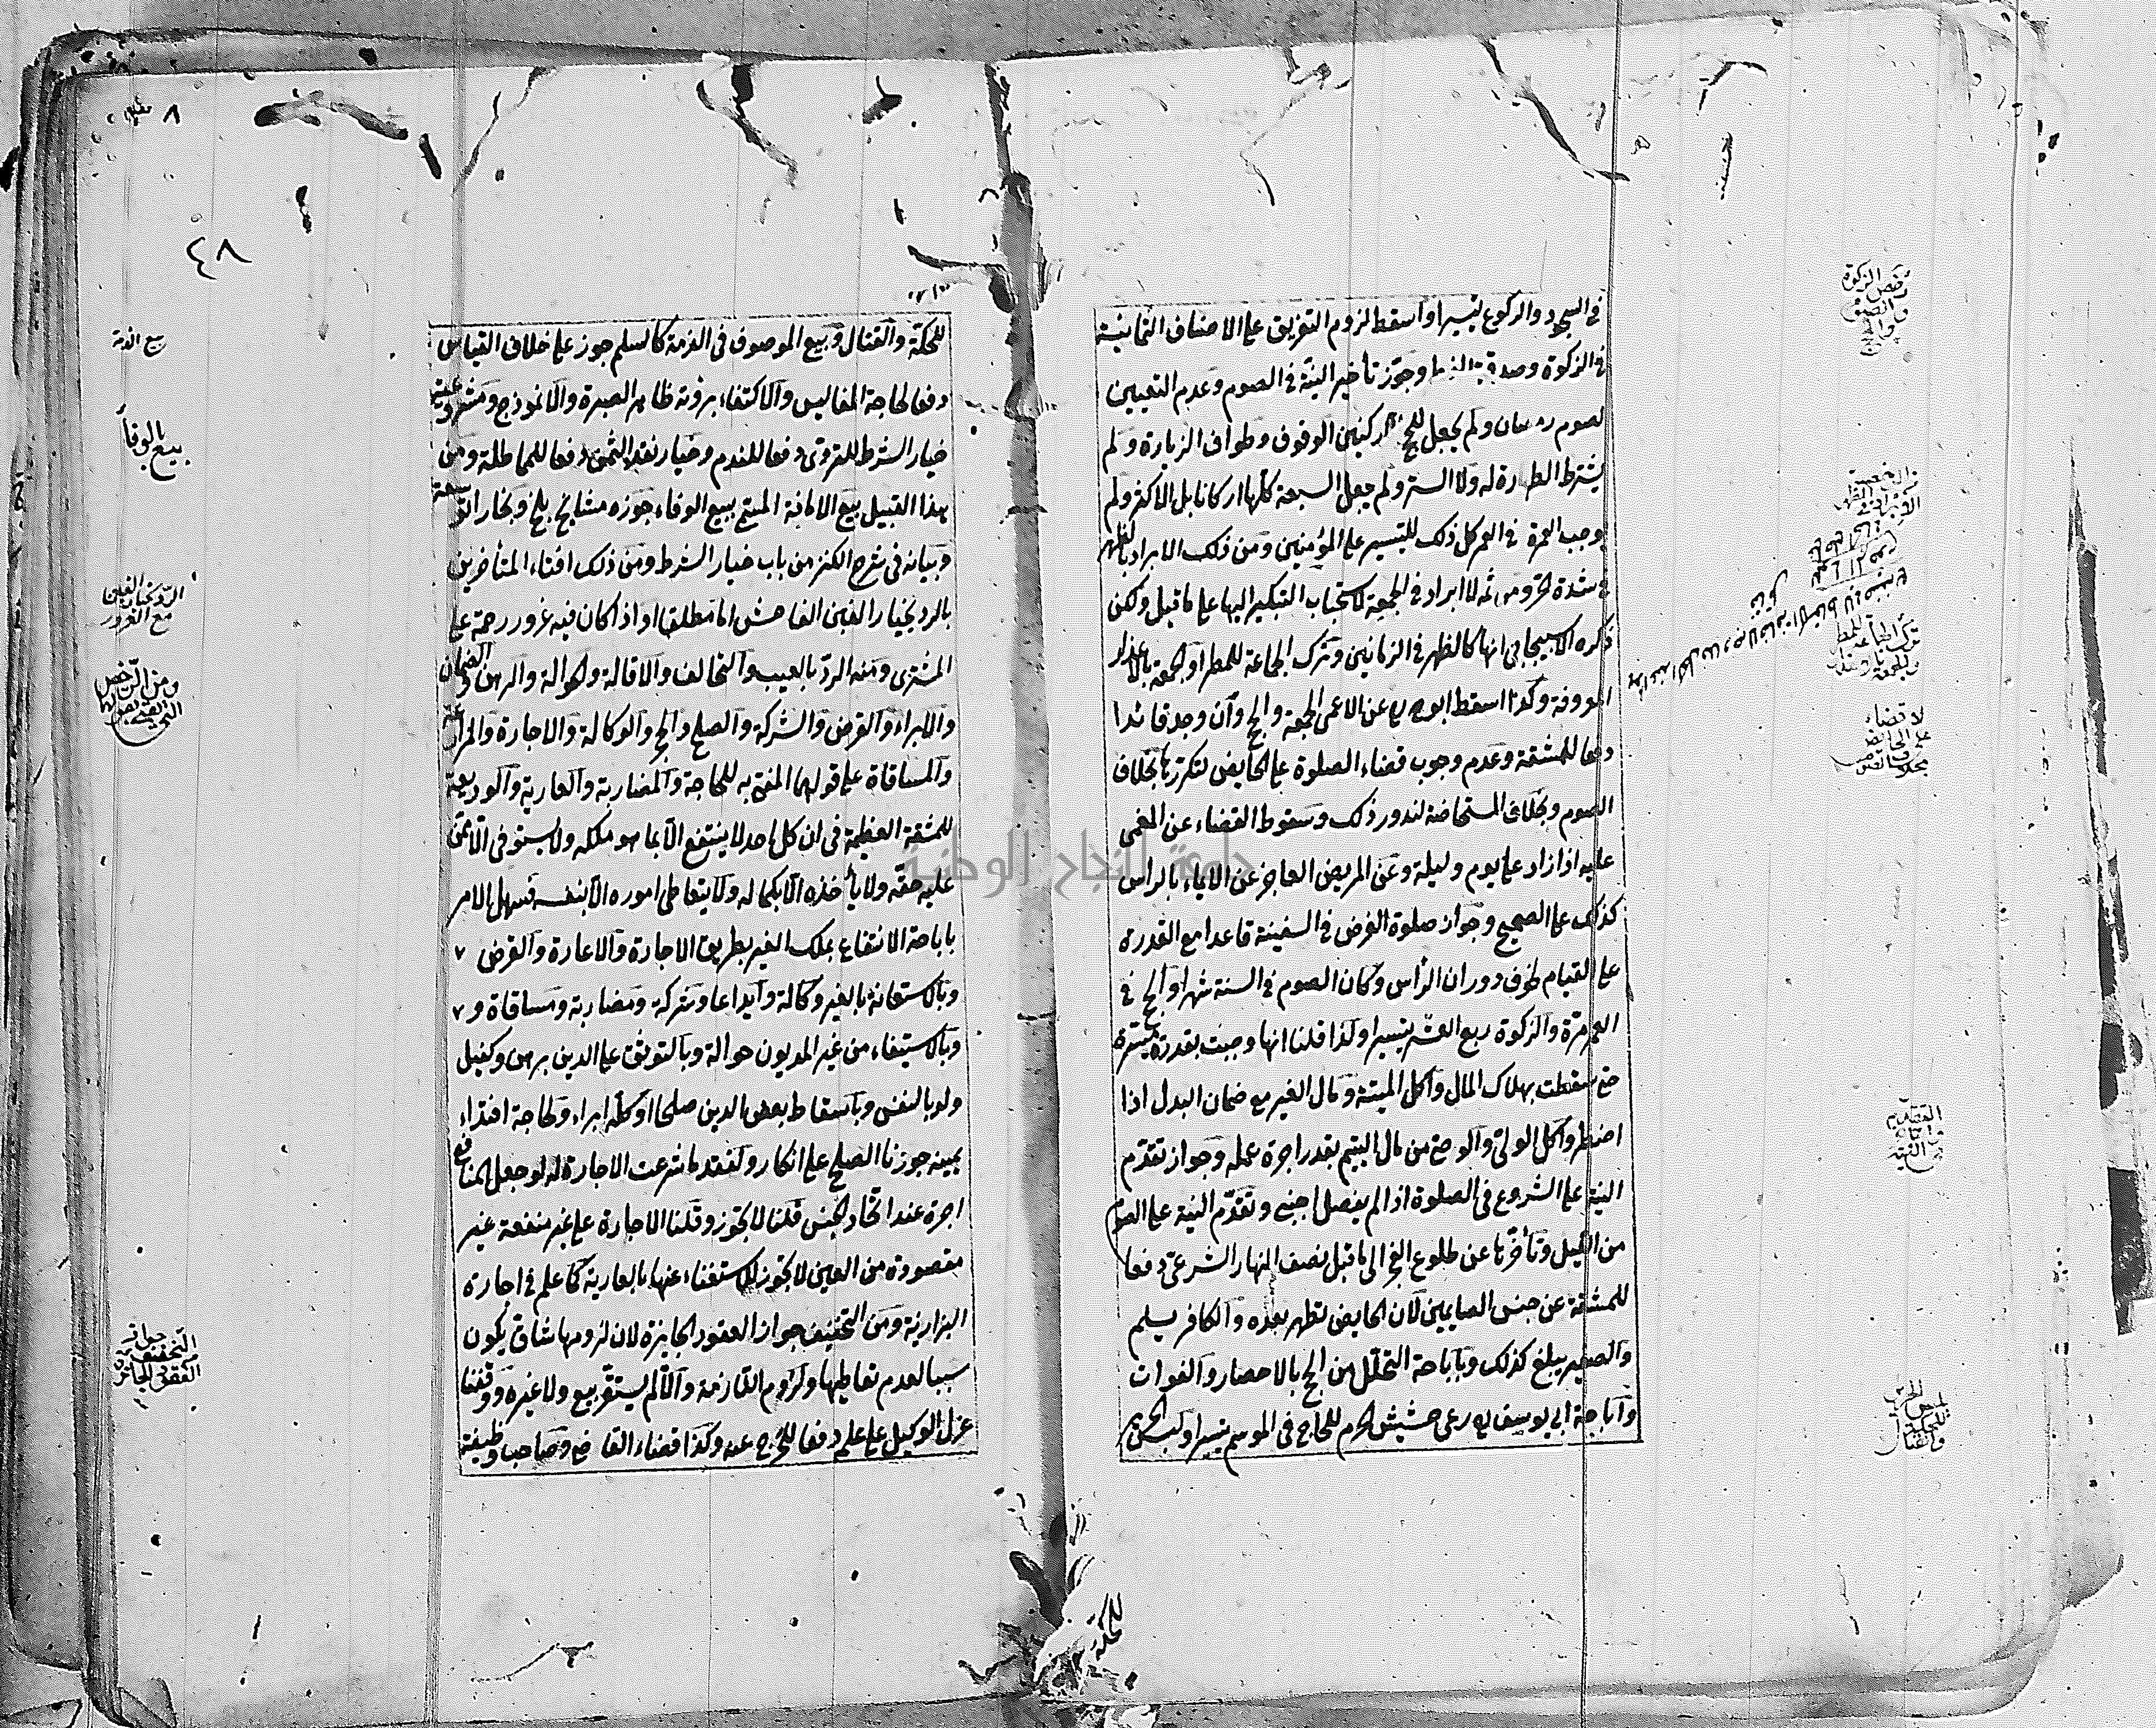 في السجود والركوع تيسيرا واسقط لزوم التفريق على الاصناف الثمانية
في الزكوة وصدقة وجوّز تأخير النية في الصوم وعدم التعيين
لصوم رمضان ولم يجعل للحج الا ركنين الوقوف وطواف الزيارة ولم
يشترط الطهارة له ولا الستر ولم يجعل السبعة كلها اركانا بل الاكثر ولم
يوجب العمرة في العمر كل ذلك للتيسير على المؤمنين ومن ذلك الابراد بالظهر
في شدة الحر ومن ثمه لا ابراد في الجمعة لاستحباب التبكير اليها على ما قيل ولكن
ذكره الاسبيجابي انها كالظهر في الزمانين وترك الجماعة للمطر او الجمعة بالاعذار
المعروفة وكذا اسقط ابو ح عن الاعمى الجمعة والحج وان وجد قائدا
دفعا للمشقة وعدم وجوب قضاء الصلوة على الحايض لتكررها بخلاف
الصوم وبخلاف المستحاضة لندور ذلك وسقوط القضاء عن المغمى
عليه اذا زاد على يوم وليلة وعن المريض العاجز عن الايماء بالراس
كذلك على الصحيح وجواز صلوة الفرض في السفينة قاعدا مع القدرة
على القيام لخوف دوران الرأس وكان الصوم في السنة شهرا والحج في
العمر مرّة والزكوة ربع العشر تيسيرا ولذا قلنا انها وجبت بقدرة ميسّرة
حتى سقطت بهلاك المال واكل الميتة ومال الغير مع ضمان البدل اذا
اضطر واكل الولي والوصي من مال اليتيم بقدر اجرة عمله وجواز تقدّم
النية على الشروع في الصلوة اذا لم يفصل اجنبي وتقدّم النية على الصوم
من الليل وتأخرها عن طلوع الفجر الى ما قبل نصف النهار الشرعي دفعا
للمشقة عن جنس الصايمين لان الحايض تطهر بعده والكافر يسلم
والصغير يبلغ كذلك وباباحة التحلل من الحج بالاحصار والفوات
واباحة ابي يوسف رعى حشيش الحرم للحاج في الموسم تيسيرا ولبس الحرير
للحكة
رخص الزكوة
والصوم
والحج
ترك الجماعة للمطر
لا قضاء
على الحائض
بخلاف الصوم
لبس الحرير
للحكة
والقتال
٤٨
للحكة والقتال وبيع الموصوف في الذمة كالسلم جوز على خلاف القياس
دفعا لحاجة المفاليس والاكتفاء برؤية ظاهر الصبرة والانموذج ومشروعية
خيار الشرط للتروّى دفعا للندم وخيار نقد الثمن دفعا للمماطلة ومن
هذا القبيل بيع الامانة المسمّى ببيع الوفاء جوزه مشايخ بلخ وبخارا توسعة
وبيانه في شرح الكنز من باب خيار الشرط ومن ذلك افتاء المتأخرين
بالرد بخيار الغبن الفاحش اما مطلقا او اذا كان فيه غرور رحمة على
المشترى ومنه الردّ بالعيب والتحالف والاقالة والحوالة والرهن والضمان
والابراء والقرض والشركة والصلح والحجر والوكالة والاجارة والمزارعة
والمساقاة على قولهما المفتى به للحاجة والمضاربة والعارية والوديعة
للمشقة العظيمة في ان كل احد لا ينتفع الّا بما هو ملكه ولا يستوفى الّا ممّن
عليه حقه ولا يأخذه الّا بكماله ولا يتعاطى اموره الّا بنفسه فسهل الامر
باباحة الانتفاع بملك الغير بطريق الاجارة والاعارة والقرض
وبالاستعانة بالغير وكالة وايداعا وشركة ومضاربة ومساقاة و
وبالاستيفاء من غير المديون حوالة وبالتوثق على الدين برهن وكفيل
ولو بالنفس وباسقاط بعض الدين صلحا او كله ابراء ولحاجة افتداء
يمينه جوزنا الصلح على انكار ولفقد ما شرعت الاجارة له لو جعل المنافع
اجرة عند اتحاد الجنس قلنا لا يجوز وقلنا الاجارة على غير منفعة غير
مقصودة من العين لا يجوز للاستغناء عنها بالعارية كما علم في اجارة
البزازية ومن التخفيف جواز العقود الجايزة لان لزومها شاق يكون
سببا لعدم تعاطيها ولزوم اللازمة والّا لم يستقرّ بيع ولا غيره ووقفنا
عزل الوكيل على علمه دفعا للحرج عنه وكذا قضاء القاضي وصاحب وظيفة
بيع الذمة
بيع بالوفا
الرد بخيار الغبن
مع الغرور
ومن الرخص
جواز
العقود الجائزة